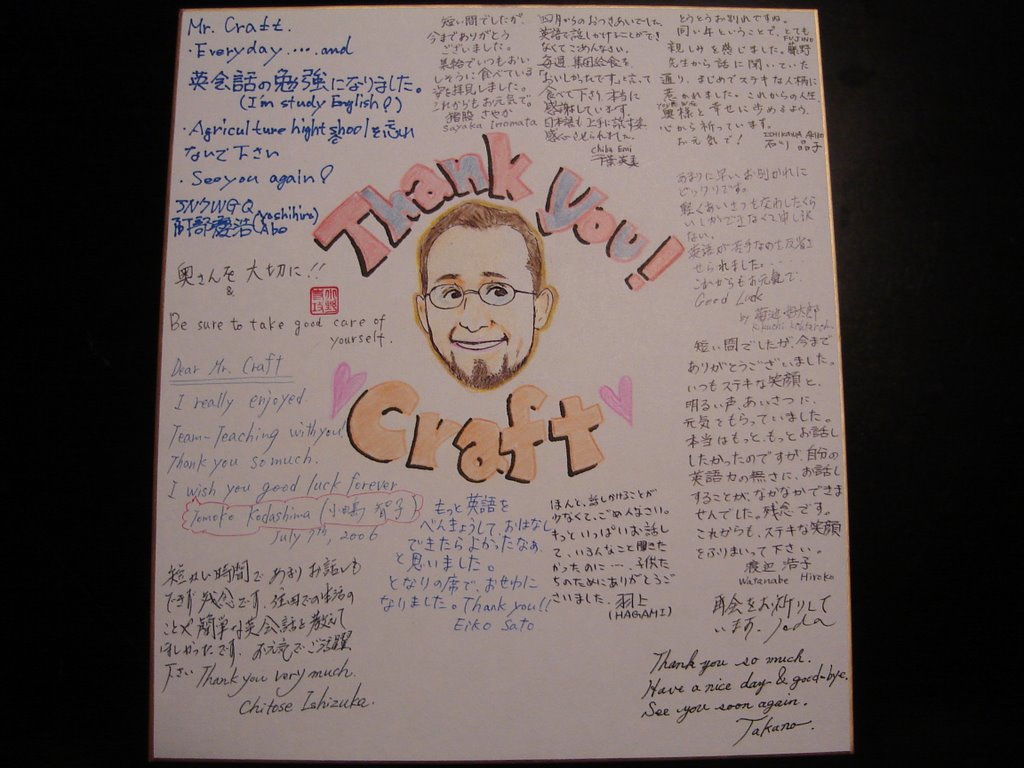 Mr. Craft.
・Everyday.....and
英会話の勉強になりました。
(I'm study English?)
・Agriculture hight shool を忘れ
ないで下さい
・See you again?
JN7WGQ
阿部慶浩 (Yoshihiro Abo)
奥さんを 大切に!!
&
Be sure to take good care of
yourself.
Dear Mr. Craft
I really enjoyed
Team-Teaching with you!
Thank you so much.
I wish you good luck forever
Tomoko Kodashima (小田島 智子)
July 7th, 2006
短かい時間で あまりお話しも
できず 残念です.
ことや 簡単な英会話を教えて
ほしかったです. お元気でご活躍
下さい Thank you very much.
Chitose Ishizuka.
短い間でしたが、
今までありがとう
ございました。
給食でいつもおい
しそうに食べている
姿を拝見しました。
これからもお元気で。
猪股 さやか
Sayaka Inomata
四月からのおつきあいでした。
英語で話しかけることができ
なくてごめんなさい。
毎週 集団給食を、
「おいしかったです」と言って
食べて下さり、本当に
感謝しています。
日本語も上手に話す姿、
感心させられました。
Chiba Emi
千葉英美
とうとうお別れですね。
同い年ということで、とても
親しみを感じました。藤野 FUJINO
先生から話に聞いていた
通り、まじめでステキな人柄に
惹かれました。これからの人生、
奥様と幸せに歩めるよう、
心から祈っています。
お元気で! ISHIKAWA Akiko
石川 晶子
Thank you!
Craft
あまりに早いお別れに
ビックリです。
軽くあいさつをかわしたくら
いしかできなくて申し訳
ない。
英語が苦手なのを反省さ
せられました.....
これからもお元気で.
Good Luck
by 菊池
Kikuchi
短い間でしたが、今まで
ありがとうございました。
いつもステキな笑顔と、
明るい声、あいさつに、
元気をもらっていました。
本当はもっと、もっとお話し
したかったのですが、自分の
英語力の無さに、お話し
することが、なかなかできま
せんでした。残念です。
これからも、ステキな笑顔
をふりまいって下さい。
渡辺 浩子
Watanabe Hiroko
もっと英語を
べんきょうして、おはなし
できたらよかったなぁ
と思いました。
となりの席で、おせわに
なりました。Thank you!!
Eiko Sato
ほんと、話しかけることが
少なくて、ごめんなさい。
もっといっぱいお話し
て、いろんなこと聞きた
かったのに…、子供た
ちのためにありがとうご
ざいました。羽上
(HAGAMI)
再会をお祈りして
います.
Thank you so much.
Have a nice day & good-bye.
See you soon again.
Takano.